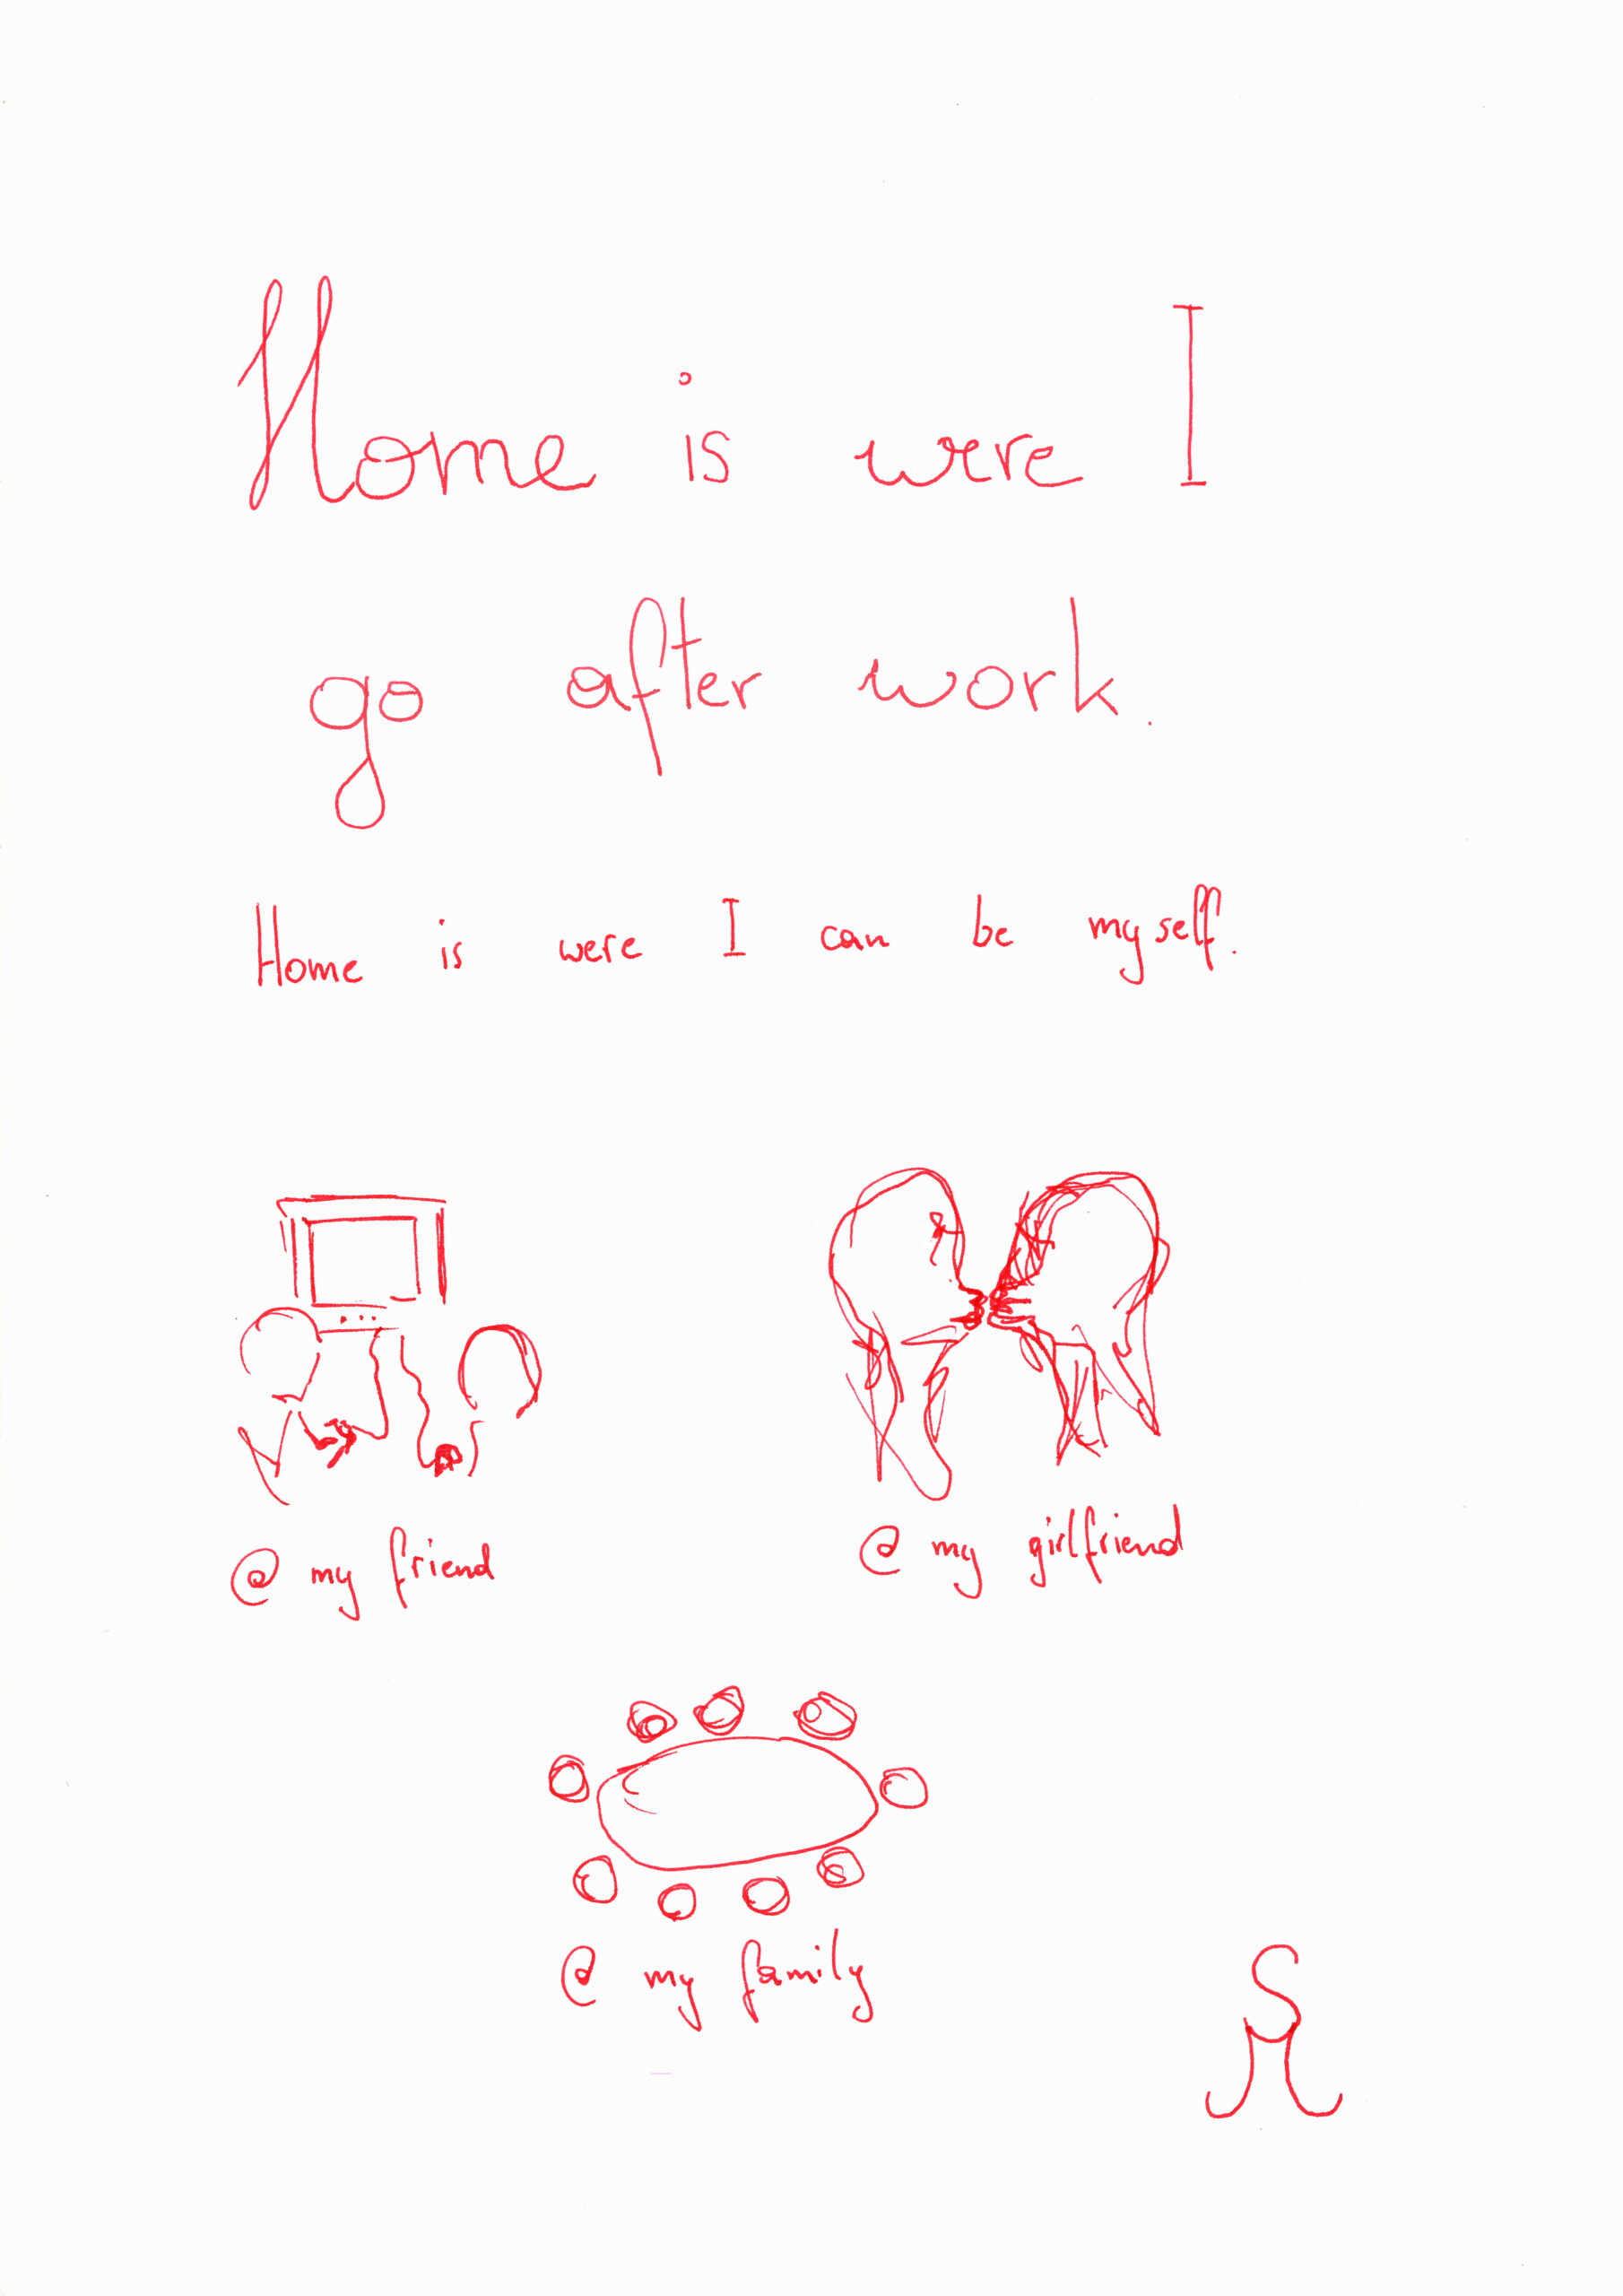 Home is were I
go after work.
Home is were I can be myself.
@ my friend
@ my girlfriend
@ my family
S